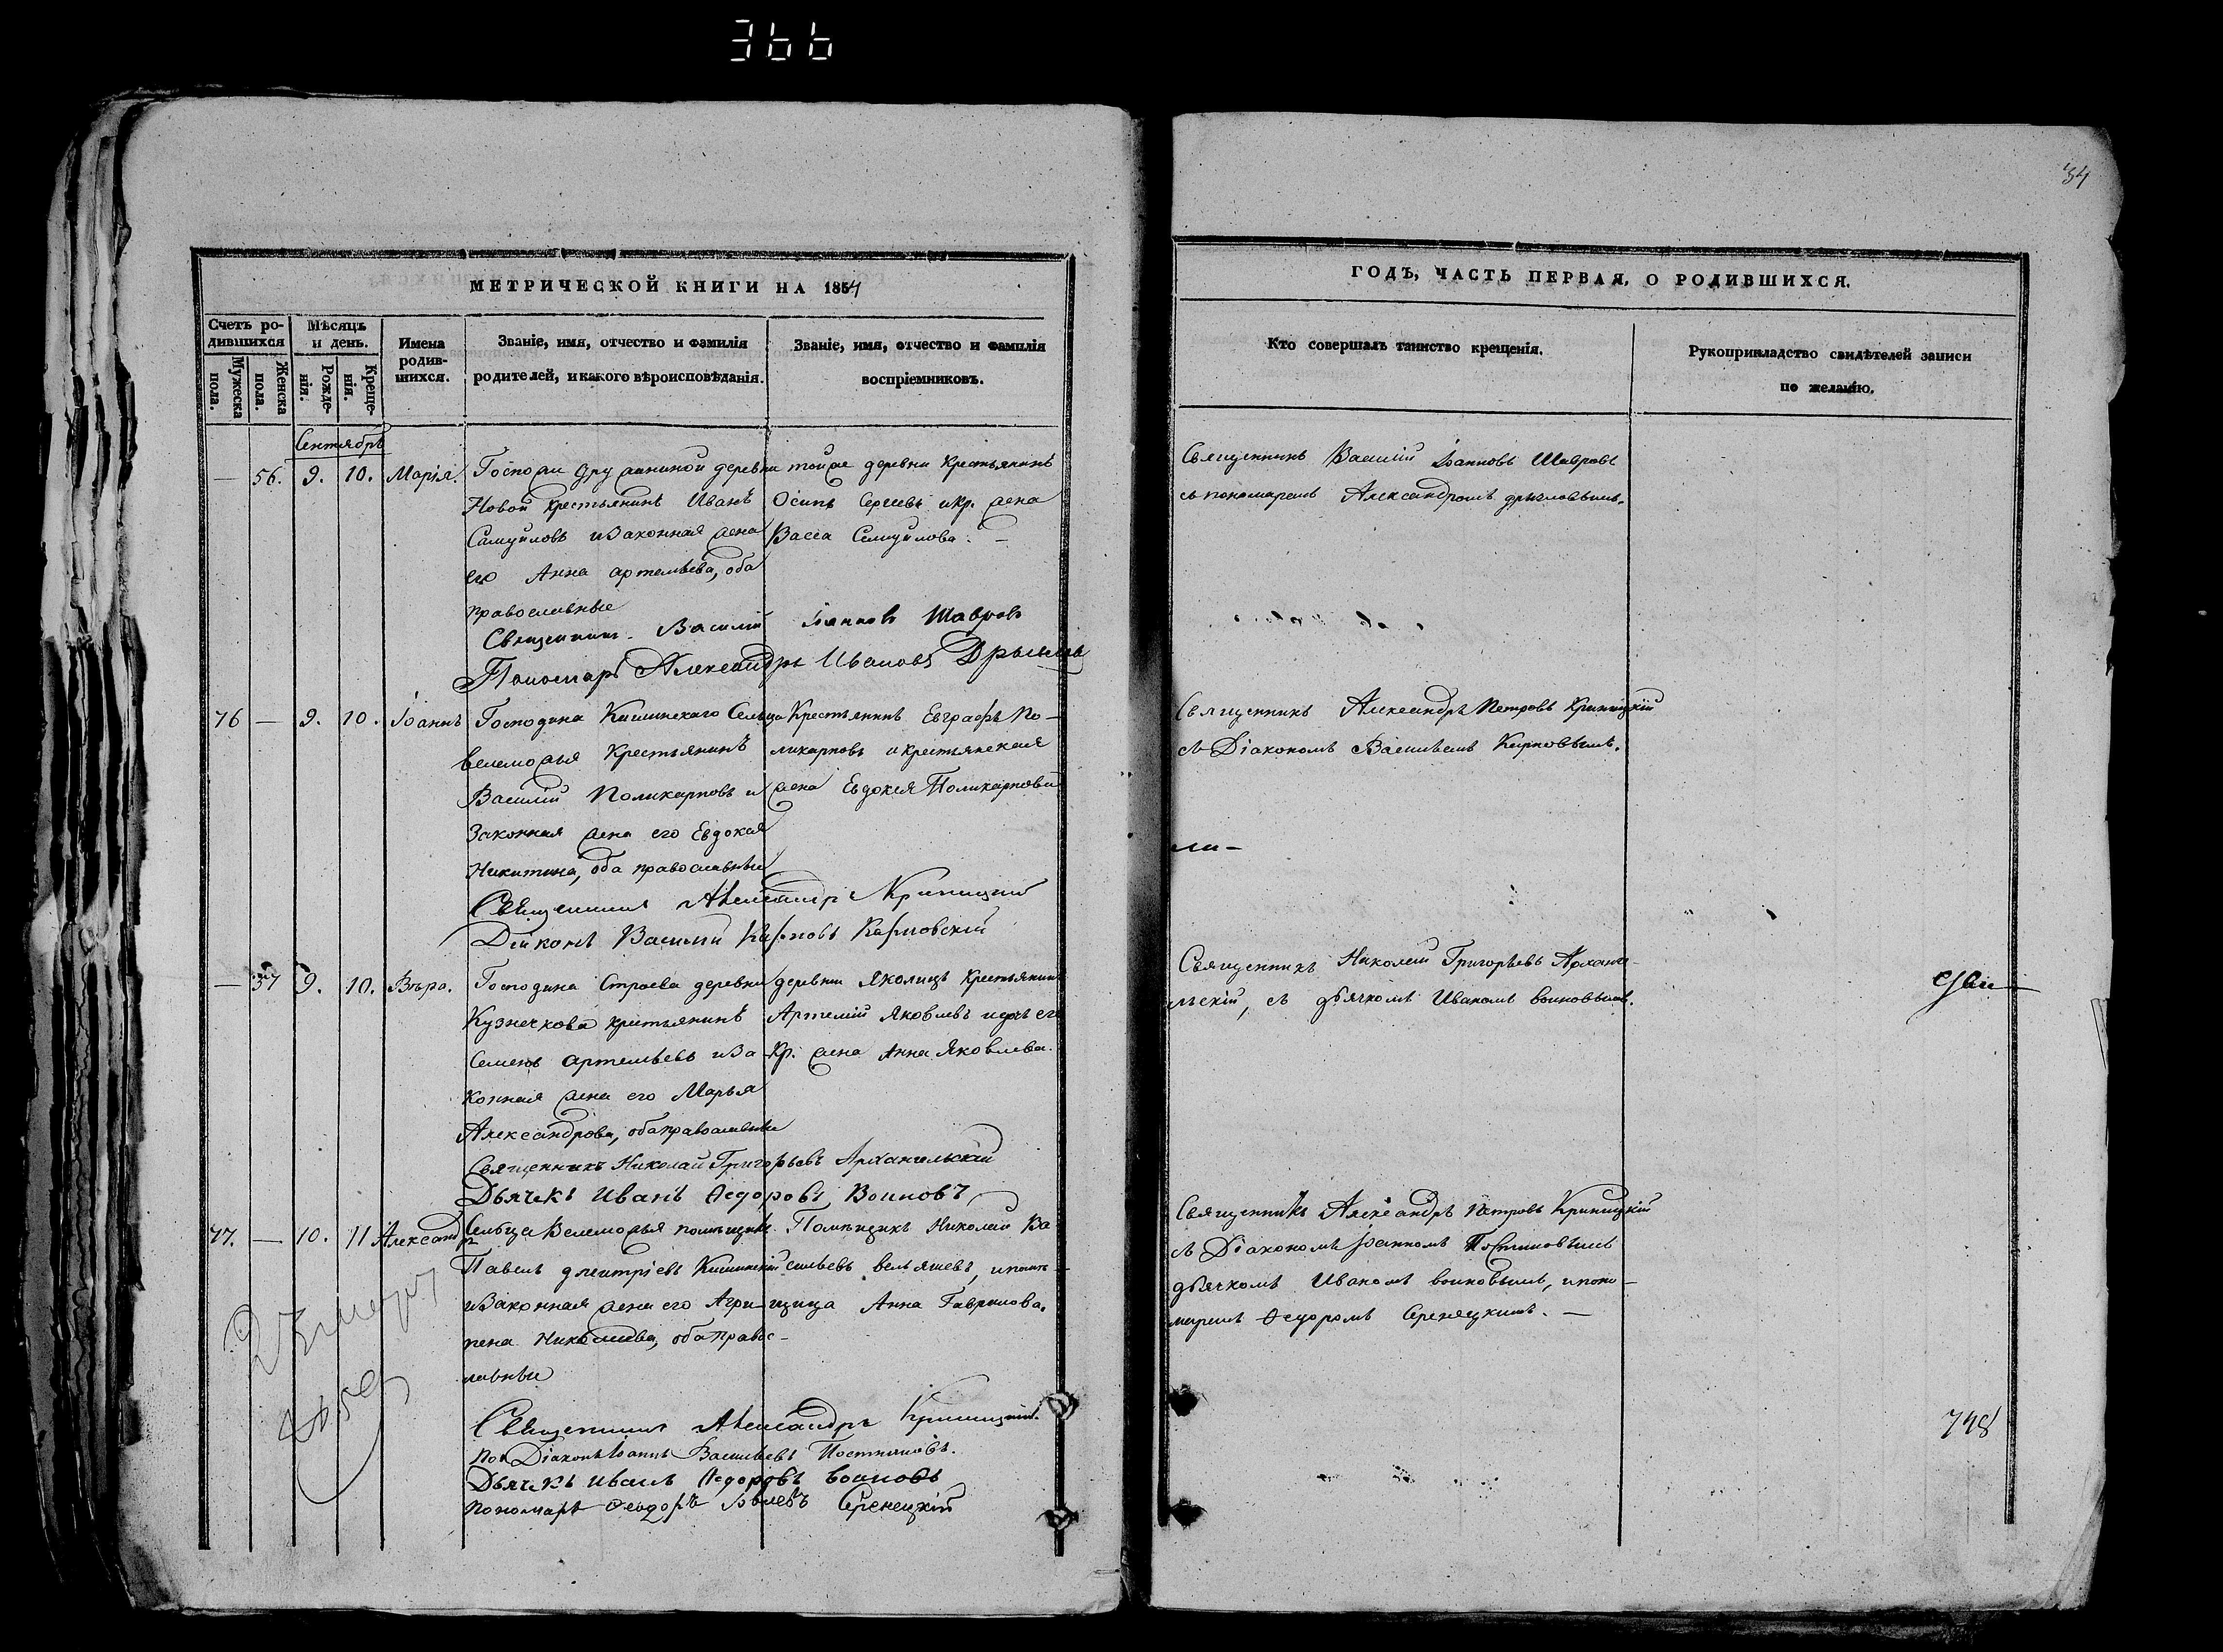 366
34
МЕТРИЧЕСКОЙ КНИГИ НА 1854
Счетъ ро-
дившихся
Мужеска
пола.
Женска
пола.
Мѣсяцъ
и день.
Рожде-
нія.
Креще-
нія.
Имена
родив-
шихся.
Званіе, имя, отчество и фамилія
родителей, и какого вѣроисповѣданія.
Званіе, имя, отчество и фамилія
воспріемниковъ.
Сентябрь
— 56. 9. 10. Марія.
деревни
Новой крестьянинъ Иванъ
Самуиловъ и законная жена
его Анна Артемьева, оба
православные
тойже деревни крестьянинъ
Осипъ Сергеевъ и кр. жена
Васса Самуйлова. —
Священникъ Василій Іоанновъ Шавровъ
Пономарь Александръ Ивановъ
76 — 9. 10. Іоаннъ
Господина Кишинскаго Сельца
Велеможья крестьянинъ
Василій Поликарповъ и
законная жена его Евдокія
Никитина, оба православные
Крестьянинъ Евграфъ По-
ликарповъ и крестьянская
жена Евдокія Поликарпова
Священникъ Александръ Криницкій
Діаконъ Василій Карповъ Карповскій
— 57 9. 10. Вѣра.
Господина Строева деревни
Кузнечкова крестьянинъ
Семенъ Артемьевъ и за-
конная жена его Марья
Александрова, оба православные
деревни Яколицъ крестьянинъ
Артемій Яковлевъ
кр. жена Анна Яковлева.
Священникъ Николай Григорьевъ Архангельскій
Дьячекъ Иванъ Ѳедоровъ Воиновъ
77. — 10. 11 Александръ
Сельца Велеможья помѣщикъ
Павелъ Дмитріевъ Кишинскій
и законная жена его Агри-
пена Николаева, оба право-
славные
Помѣщикъ Николай Ва-
сильевъ Вельяшевъ, и помѣ-
щица Анна Гаврилова.
Священникъ Александръ Криницкій.
Діаконъ Іоаннъ Васильевъ Постниковъ.
Дьячекъ Иванъ Ѳедоровъ Воиновъ
Пономарь Ѳеодоръ Іовлевъ Серенецкій
ГОДЪ, ЧАСТЬ ПЕРВАЯ, О РОДИВШИХСЯ.
Кто совершалъ таинство крещенія.
Рукоприкладство свидѣтелей записи
по желанію.
Священникъ Василій Іоанновъ Шавровъ
съ пономаремъ Александромъ
Священникъ Александръ Петровъ Криницкій
съ Діакономъ Васильемъ Карповымъ.
Священникъ Николай Григорьевъ Арханге-
льскій, съ дьячкомъ Иваномъ Воиновымъ.
Священникъ Александръ Петровъ Криницкій
съ Діакономъ Іоанномъ Постниковымъ
дьячкомъ Иваномъ Воиновымъ, и поно-
маремъ Ѳедоромъ Серенецкимъ. —
748